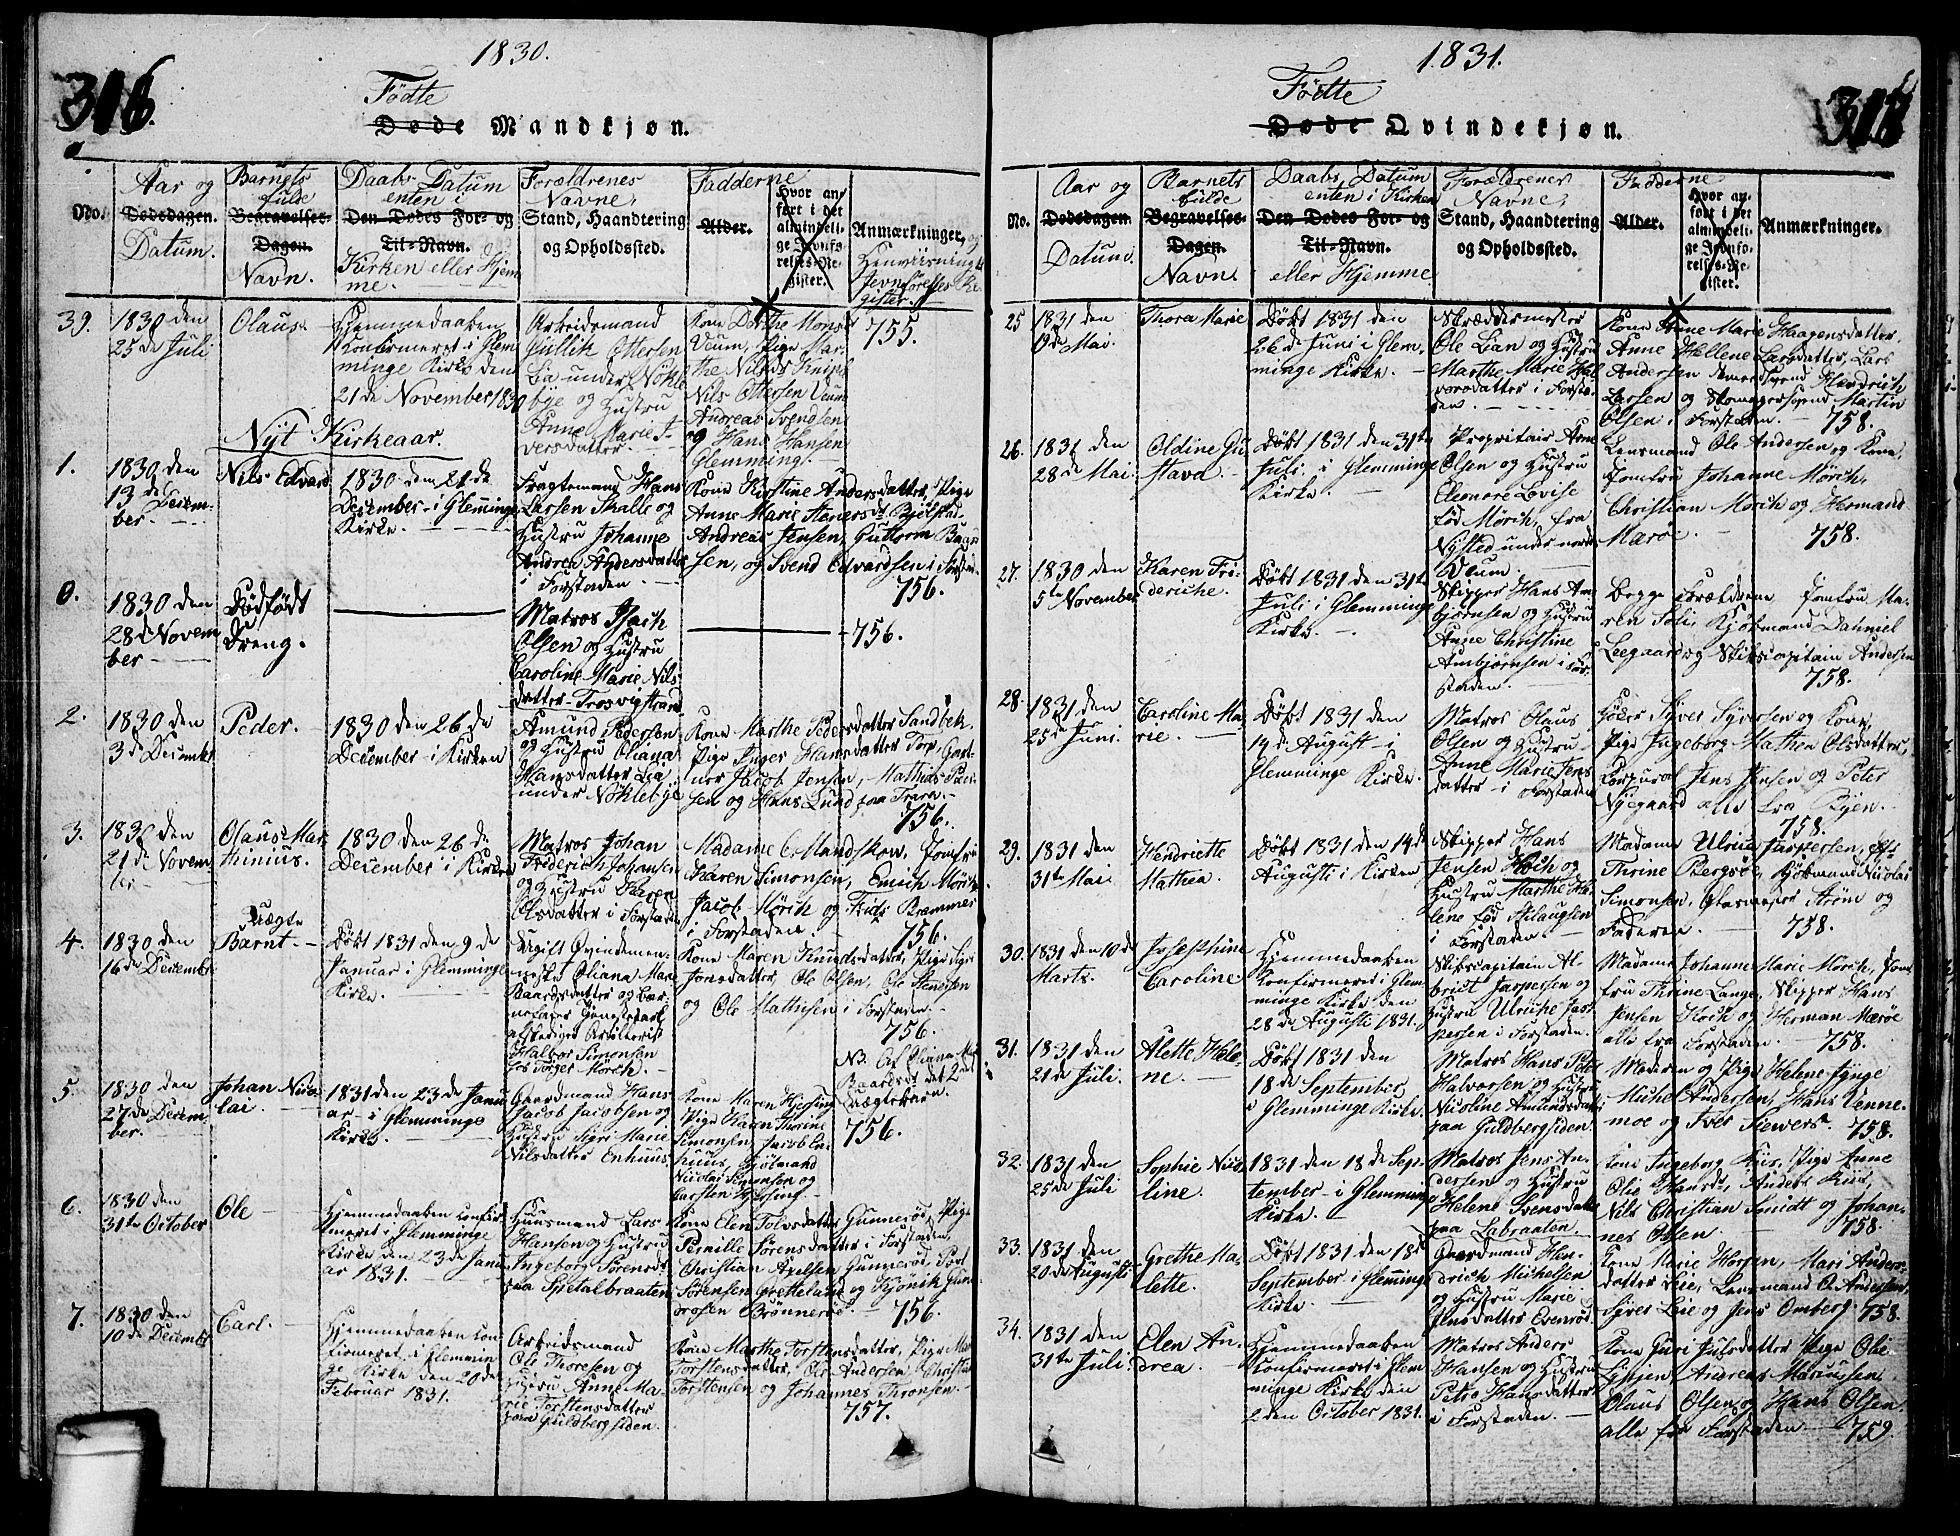 1830.
316.
Fødte
Døde Mandkjøn.
No.
Aar og
Dødsdagen.
Datum.
Barnets
fulde
Begravelses-
Dagen.
Navn.
Daabs Datum
enten i
Den Dødes For- og
Til-Navn.
Kirken eller Hjem-
me.
Forældrenes
Navne,
Stand, Haandtering
og Opholdssted.
Fadderne
Alder.
Hvor an-
ført i det
almindeli-
ge Jevnfø-
relses-Re-
gister.
Anmærkninger, og
Henviisning til
Jevnførelses Re-
gister.
39.
1830 den
25de Juli
Olaus.
Hjemmedaaben
Konfirmeret i Glem-
minge Kirke den
21de November 1830
Arbeidsmand
Gullik Ottersen
Lia under Nökle-
bye og Hustru
Anne Marie
versdatter.
Kone Dorthe Mons
Veum, Pige Mar-
the Nilsd. Knips
Nils Ottersen Veum
Andreas Svendsen
og Hans Hansen
Glemming.
755.
Nyt Kirkeaar.
1.
1830 den
13de Decem-
ber.
Nils Edvard
1830 den 21de
December i Glemminge
Kirke.
Fragtemand Hans
Larsen Skalle og
Hustru Johanne
Andrea Andersdatter
i Forstaden.
Kone Kirstine Andersdatter, Pige
Anne Marie Stenersd. Bjelstad
Andreas Jensen, Guttorm Baar-
sen, og Svend Edvardsen i Forstad.
756.
0.
1830 den
28de Novem-
ber
Dödfödt
Dreng.
Matros Isach
Olsen og Hustru
Caroline Marie Nils-
datter Trosvigstrand
756.
2.
1830 den
3de December
Peder.
1830 den 26de
December i Kirken
Amund Pedersen
og Hustru Oliana
Hansdatter Lia
under Nöklebye
Kone Marthe Pedersdatter Sandbek
Pige Inger Hansdatter Torp, Gart-
ner Jacob Jensen, Mathias
sen og Hans Lund paa Trara.
756.
3.
1830 den
21de Novem-
ber
Olaus Mar-
thinius.
1830 den 26de
December i Kirken
Matros Johan
Frederich Johansen
og Hustru Karen
Olsdatter i Forstaden
Madame C. Mandskow, Jomfru
Karen Simonsen, Emich Mörch
Jacob Mörch og Frids Brammer
i Forstaden.
756.
4.
1830 den
16de December
Uægte
Barnt.
Døbt 1831 den 9de
Januar i Glemminge
Kirke.
Ugift Qvindemen-
neske Oliana Mar.
Baardsdatter og Bar-
nefader
afskediget Artillerist
Halvor Simonsen
hos Jörger Mörch.
Kone Maren Knudsdatter, Pige Sigri
Jonsdatter, Ole Olsen, Ole Stenersen
og Ole Mathisen i Forstaden.
756.
NB. Af Oliana Mar.
Baardsd. det 2det
Uægtebarn.
5.
1830 den
27de Decem-
ber.
Johan Nico-
lai.
1831 den 23de Janu-
ar i Glemminge
Kirke.
Gaardmand Hans
Jacob Jacobsen og
Hustru Sigri Marie
Nilsdatter Enhuus
Kone Maren Hjersing
Pige Karen Thrine
Simonsen, Jacob En-
huus, Kjöbmand
Nicolai Simonsen og
Carsten Hjersing
756.
6.
1830 den
31te October
Ole
Hjemmedaaben Confir-
meret i Glemminge
Kirke den 23de Janu-
ar 1831.
Huusmand Lars
Hansen og Hustru
Ingeborg Sörensd.
paa Spetalbraaten
Kone Elen Tolvsdatter Gunneröd, Pige
Pernille Sörensdatter i Forstaden,
Christian Axelsen Gunneröd,
Sörensen Gretteland og Kjönik Gun-
drosen Brönneröd.
756.
7.
1830 den
10de December
Carl.
Hjemmedaaben Con-
firmeret i Glemmin-
ge Kirke den 20de
Februar 1831.
Arbeidsmand
Ole Thoresen og
Hustru Anne Ma-
rie Torstensdatter
paa Guldbergsiden.
Kone Marthe Torstensdatter, Pige
Torstensdatter, Ole Andersen, Christian
Torstensen og Johannes Thronsen.
757.
1831.
Fødte
Døde Qvindekjøn.
No.
Aar og
Dødsdagen.
Datum.
Barnets
fulde
Begravelses-
Dagen.
Navn.
Daabs Datum
enten i Kirken
Den Dødes For- og
Til-Navn.
eller Hjemme.
Forældrenes
Navne,
Stand, Haandtering
og Opholdssted.
Fadderne
Alder.
Hvor an-
ført i det
almindeli-
ge Jevnfø-
relses-Re-
gister.
Anmærkninger.
25
1831 den
19de Mai.
Thora Marie
Døbt 1831 den
26de Juni i Glem-
minge Kirke.
Skræddermester
Ole Lian og Hustru
Marthe Marie Hal-
vorsdatter i Forsta-
den.
Kone Anne Marie Haagensdatter,
Anne Hellene Larsdatter, Lars
Andersen Hendrich
Larsen og Skomagersvend Martin
Olsen i Forstaden.
758.
26.
1831 den
28de Mai
Oldine Gu-
stava
Døbt 1831 den 31te
Juli i Glemminge
Kirke.
Proprietair Arne
Olsen og Hustru
Eleonore Lovise
föd Mörch, fra
Nysted under nordr.
Veum.
Lensmand Ole Andersen og Kone,
Jomfru Johanne Mörch,
Christian Mörch og Hermand
Maröe.
758.
27.
1830 den
5te November
Karen Fri-
deriche.
Døbt 1831 den 31te
Juli i Glemminge
Kirke.
Skipper Hans Am-
björnsen og Hustru
Anne Christine
Ambjörnsen i For-
staden.
Begge Forældrene Jomfru Ma-
ren Soli, Kjöbmand Dahniel
Leegaard og Skibscapitain Andersen
758.
28.
1831 den
25de Juni
Caroline Ma-
rie.
Døbt 1831 den
14de August i
Glemminge Kirke.
Matros Olaus
Olsen og Hustru
Anne Marie Jens-
datter i Forstaden
Syver Syversen og Kone,
Pige Ingeborg Mathea Olsdatter,
Corpural Jens Jensen og Peter
Nygaard alle fra Byen.
758.
29.
1831 den
31te Mai
Hendriette
Mathea.
Døbt 1831 den 14de
Augusti i Kirken
Skipper Hans
Jensen Koch og
Hustru Marthe Ha-
lene föd Aslaugsen
i Forstaden.
Madame Ulrica Jaspersen,
Thrine Bergsöe, Kjöbmand Nicolai
Simonsen, Glasmester Ström og
Faderen.
758.
30.
1831 den 10de
Marts.
Josephine
Caroline
Hjemmedaaben
Konfirmeret i Glem-
minge Kirke den
28de Augusti 1831.
Skibscapitain Al-
brict Jaspersen og
Hustru Ulriche Jas-
persen i Forstaden.
Madame Johanne Marie Mörch, Jom-
fru Thrine Lange, Skipper Hans
Jensen Koch og Herman Maröe
alle fra Forstaden.
758.
31.
1831 den
21de Juli.
Alette Hele-
ne.
Døbt 1831 den
18de September,
i Glemminge Kirke.
Matros Hans Peter
Halvorsen og Hustru
Nicoline Amundsdatter
paa Guldbergsiden.
Moderen og Pige Helene Lynge
Michel Andersen, Hans Venne-
moe og Iver Siewers.
758.
32.
1831 den
25de Juli
Sophie Nico-
line.
1831 den 18de Sep-
tember i Glemminge
Kirke.
Matros Jens An-
dersen og Hustru
Helene Svensdatter
paa Labraaten.
Kone Ingeborg Kiis, Pige Anne
Olie Hansd., Anders Kiis,
Nils Christian Smidt og Johan-
nes Olsen.
758.
33.
1831 den
20de Augusti
Grethe Ma-
lette.
Døbt 1831 den 18de
September i Glemminge
Kirke.
Gaardmand Hen-
drich Michelsen
og Hustru Marie
Jensdatter Evenröd.
Kone Marie Horgen, Mari Anders-
datter Leie, Lensmand O. Andersen,
Syver Leie og Jens Omberg
758.
34.
1831 den
31te Juli.
Elen An-
drea.
Hjemmedaaben
Konfirmeret i Glem-
minge Kirke den
2den October 1831.
Matros Anders
Hansen og Hustru
Petra Hansdatter
i Forstaden.
Kone Guri Julsdatter Pige Olie
Lyssen, Andreas Marcussen
Olaus Olsen og Hans Olsen
alle fra Forstaden
759.